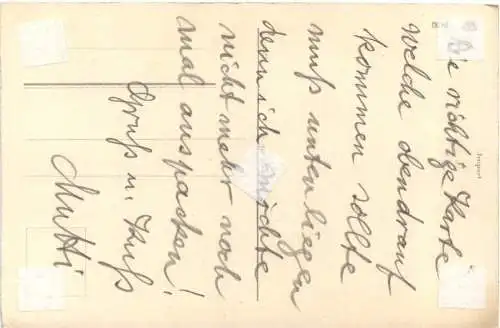 Die richtige Karte
welche obendrauf
kommen sollte
muß unten liegen
denn ich möchte
nicht mehr noch
mal auspacken!
Gruß u. Kuß
Mutti